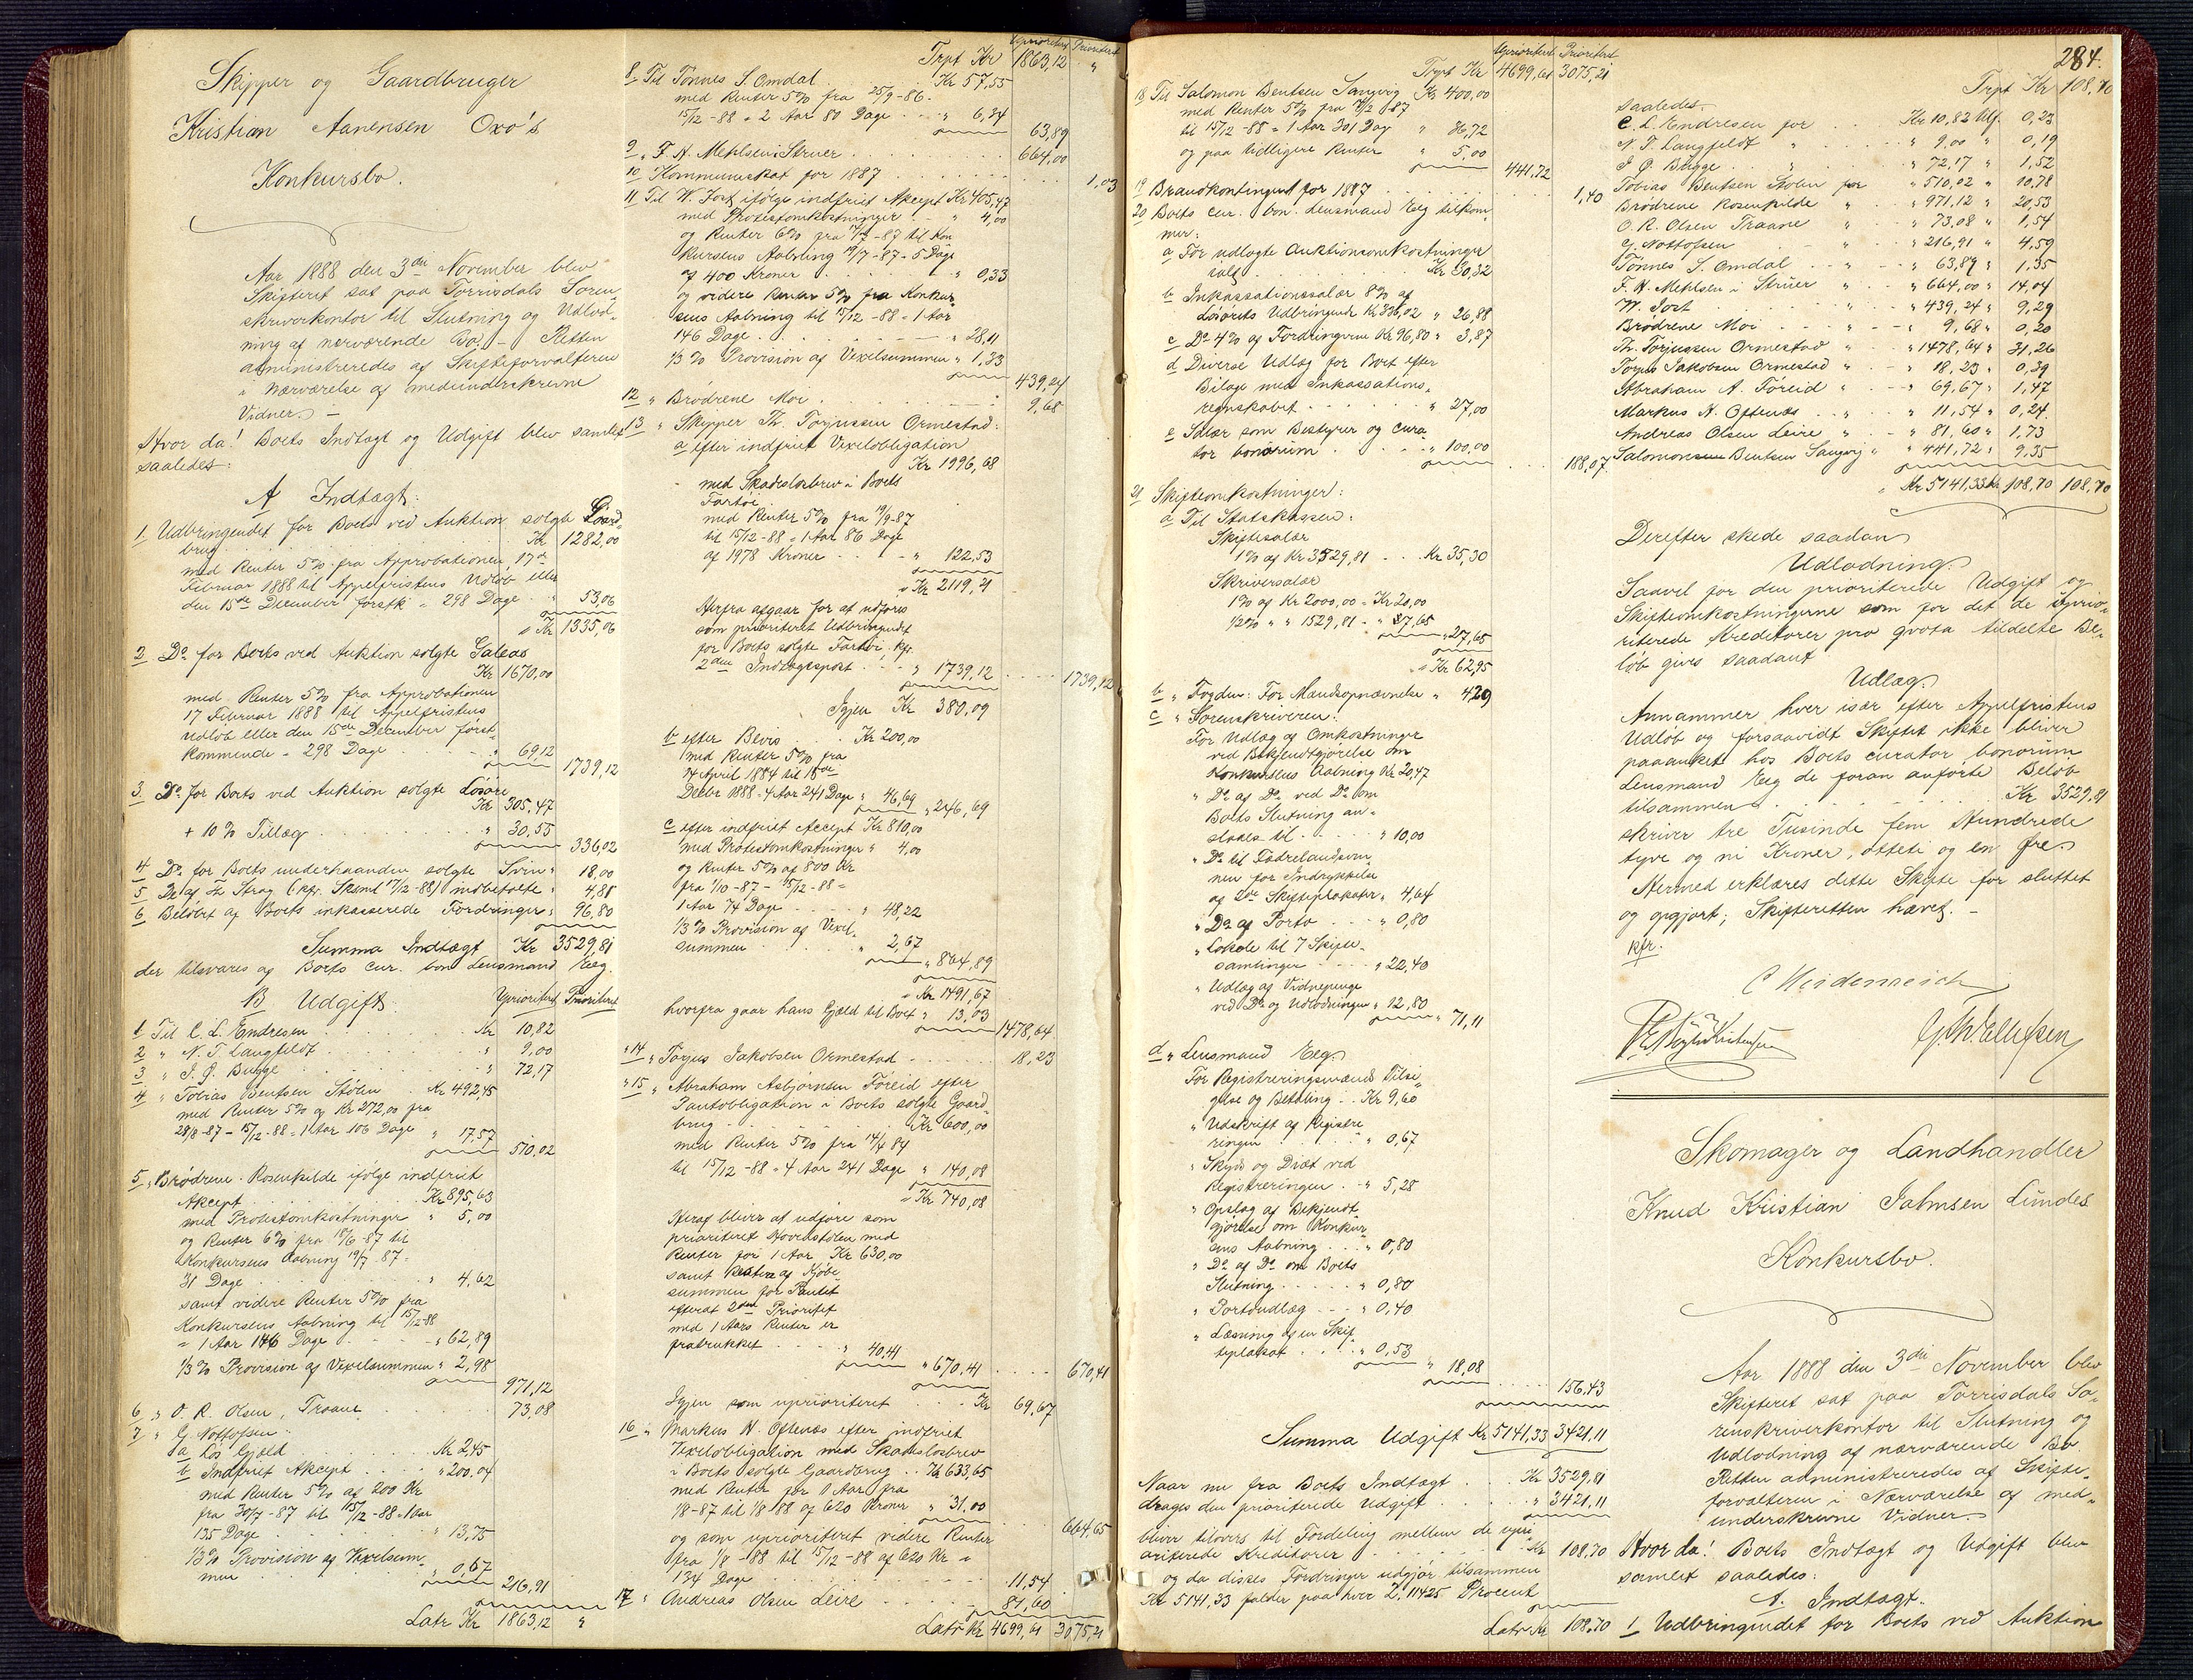 Skipper og Gaardbruger
Kristian Aanensen Oxø's
Konkursbo.
Aar 1888 den 3die November blev
Skifteret sat paa Torrisdals Soren
skriverkontor til Slutning og Udlod¬
ning af nærværende Bo. – Retten
administreredes af Skifteforvalteren
i Nærværelse af medunderskrevne
Vidner. –
Hvor da! Boets Indtægt og Udgift blev samlet
saaledes:
A Indtægt:
1. Udbringendet for Boets ved Auktion solgte Gaard¬
brug Kr 1282,00
med Renter 5% fra Approbationen, 17de
Februar 1888 til Appelfristens Udløb eller
den 15de December førstk = 298 Dage " 53,06
" Kr 1335,06
2 Do for Boets ved Auktion solgte Galeas
Kr 1670,00
med Renter 5% fra Approbationen
17 Februar 1888 til Appelfristens
Udløb eller den 15de December først¬
kommende = 298 Dage " 69,12
1739,12
3. Do for Boets ved Auktion solgte Løsøre
Kr 305,47
+ 10% Tillæg " 30,55
336,02
4 Do for Boets underhaanden solgte Sviin " 18,00
5 Do af Fr Strag (kfr. Skiml 17/12-88) indbetalte " 4,81
6 Beløbet af Boets inkasserede Fordringer " 96,80
Summa Indtægt Kr 3529,81
der tilsvares af Boets cur. bon Lensmand Eeg.
B Udgift: Uprioritert Prioritert
1 Til C. L. Endresen Kr 10,82
2 " N. T. Langfeldt " 9,00
3 " J. G. Bugge " 72,17
4 " Tobias Bentsen Stølen Kr 492,45
med Renter 5% af Kr 272,00 fra
28/8-87 – 15/12-88 = 1 Aar 106 Dage " 17,57
510,02
5 " Brødrene Rosenkilde ifølge indfriet
Akcept Kr 895,63
med Protestomkostninger " 5,00
og Renter 6% fra 18/6-87 til
Konkursens Aabning 19/7 87 =
31 Dage " 4,62
samt videre Renter 5% fra
Konkursens Aabning til 15/12-88
= 1 Aar 146 Dage " 62,89
1/3% Provision af Vexelsummen " 2,98
971,12
6 " O. R. Olsen, Traane 73,08
7 " G. Nottofsen:
a Løs Gjæld Kr 2,45
b Indfriet Akcept " 200,04
med Renter 5% af 200 Kr
fra 30/7-87 til 15/12-88 = 1 Aar
135 Dage " 13,75
1/3% Provision af Vexelsum¬
men " 0,67
216,91
Latr Kr 1863,12 "
Uprioritert Prioritert
Trpt Kr 1863,12 "
8 " Til Tønnes S. Omdal Kr 57,55
med Renter 5% fra 25/9-86 –
15/12-88 = 2 Aar 80 Dage " 6,34
63,89
9 " F. H. Mehlsen i Struer 664,00
10 Kommuneskat for 1887 1,03
11 Til W. Jost ifølge indfriet Akcept Kr 405,47
med Protestomkostninger " 4,00
og Renter 6% fra 14/7-87 til Kon
kursens Aabning 19/7-87 = 5 Dage
af 400 Kroner " 0,33
og videre Renter 5% fra Konkur¬
sens Aabning til 15/12-88 = 1 Aar
146 Dage " 28,11
1/3% Provision af Vexelsummen " 1,33
439,24
12 " Brødrene Moi 9,68
13 " Skipper Th. Torjussen Ormestad:
a efter indfriet Vexelobligation
Kr 1996,68
med Skadesløsbrev i Boets
Fartøi
med Renter 5% fra 19/9-87
til 15/12-88 = 1 Aar 86 Dage
af 1978 Kroner " 122,53
" Kr 2119,21
Herfra afgaar for at udføres
som prioriteret Udbringendet
for Boets solgte Fartøi, kfr.
2den Indtægtspost " 1739,12 1739,12
Igjen Kr 380,09
b efter Bevis Kr 200,00
med Renter 5% fra
14 April 1884 til 15de
Decbr 1888 = 4 Aar 241 Dage " 46,69 " 246,69
c efter indfriet Accept Kr 810,00
med Protestomkostninger " 4,00
og Renter 5% af 800 Kr
fra 1/10-87 – 15/12-88 =
1 Aar 74 Dage " 48,22
1/3% Provision af Vexel¬
summen " 2,67
" 864,89
" Kr 1491,67
hvorfra gaar hans Gjæld til Boet " 13,03
1478,64
14 " Torjus Jakobsen Ormestad 18,23
15 " Abraham Asbjørnsen Føreid efter
Pantobligation i Boets solgte Gaard¬
brug Kr 600,00
med Renter 5% fra 14/4 84
til 15/12-88 = 4 Aar 241 Dage " 140,08
" Kr 740,08
Heraf bliver at udføre som
prioriteret Hovedstolen med
Renter for 1 Aar Kr 630,00
samt Resten af Kjøbe¬
summen for Pantet
efterat 2den Prioritet
med 1 Aars Renter er
fratrukket " 40,41
" 670,41 670,41
Igjen som uprioriteret Kr 69,67
16 " Markus N. Oftenæs efter indfriet
Vexelobligation med Skadesløsbrev
i Boets solgte Gaardbrug Kr 633,65
med Renter for 1 Aar fra
1/8-87 til 1/8 88 af 620 Kroner " 31,00
664,65
og som uprioriteret videre Renter
fra 1/8-88 til 15/12-88 af 620 Kr =
134 Dage 11,54
17 " Andreas Olsen Leire 81,60
Latr Kr 4699,61 3075,21
Uprioritert Prioritert
Trpt Kr 4699,61 3075,21
18 Til Salomon Bentsen Sangvig Kr 400,00
med Renter 5% fra 17/2 87
til 15/12-88 = 1 Aar 301 Dag " 36,72
og paa tidligere Renter " 5,00
441,72
19 Brandkontingent for 1887 1,40
20 Boets cur. bon. Lensmand Eeg tilkom¬
mer:
a For udlagte Auktionsomkostninger
ialt Kr 30,32
b Inkassationssalær 8% af
Løsørets Udbringende Kr 336,02 " 26,88
c Do 4% af Fordringerne Kr 96,80 " 3,87
d Diverse Udlæg for Boet efter
Bilage med Inkassations¬
regnskabet " 27,00
e Salær som Bestyrer og cura
tor bonorum " 100,00
188,07
21 Skifteomkostninger:
a Til Statskassen:
Skiftesalær
1% af Kr 3529,81 Kr 35,30
Skriversalær
1% af Kr 2000,00 = Kr 20,00
1/2% " " 1529,81 = " 7,65
" 27,65
" Kr 62,95
b " Fogden: For Mandsopnævnelse " 4,29
c " Sorenskriveren:
For Udlæg og Omkostninger
ved Bekjendtgjørelse om
Konkursens Aabning Kr 20,47
" Do af Do ved Do om
Boets Slutning an¬
slaaes til " 10,00
" Do til Fædrelandsven¬
nen for Indrykkelse
af Do Skifteplakater " 4,64
" Do af Porto " 0,80
" Lokale til 7 Skifte¬
samlinger " 22,40
" Udlæg af Vidnepenge
ved Do og Udlodningen " 12,80
" 71,11
d " Lensmand Eeg.
For Registreringsmænds Tilsi¬
gelse og Betaling Kr 9,60
" Udskrift af Registre
ringen " 0,67
" Skyds og Diæt ved
Registreringen " 5,28
" Opslag af Bekjendt¬
gjørelse om Konkur¬
sens Aabning " 0,80
" Do af Do om Boets
Slutning " 0,80
" Portoudlæg " 0,40
" Læsning af en Skif
teplakat " 0,53
" 18,08
156,43
Summa Udgift Kr 5141,33 3421,11
Naar nu fra Boets Indtægt Kr 3529,81
drages den prioriterede Udgift " 3421,11
bliver tilovers til Fordeling mellem de upri¬
oriterede Kreditorer Kr 108,70
og da disses Fordringer udgjør tilsammen
Kr 5141,33 falder paa hver 2,11425 Procent
Latr Kr 108,70
284.
Trpt Kr 108,70
saaledes.
C. L. Endresen for Kr 10,82 Udl. 0,23
N. T. Langfeldt " " 9,00 " 0,19
J. G. Bugge " " 72,17 " 1,52
Tobias Bentsen Stølen for " 510,02 " 10,78
Brødrene Rosenkilde " " 971,12 " 20,53
O. R. Olsen Traane " " 73,08 " 1,54
G. Nottofsen " 216,91 " 4,59
Tønnes S. Omdal " " 63,89 " 1,35
F. H. Mehlsen i Struer " 664,00 " 14,04
W. Jost " " 439,24 " 9,29
Brødrene Moi " 9,68 " 0,20
Th. Torjussen Ormestad " " 1478,64 " 31,26
Torjus Jakobsen Ormestad " " 18,23 " 0,39
Abraham A. Føreid " " 69,67 " 1,47
Markus N. Oftenæs " " 11,54 " 0,24
Andreas Olsen Leire " " 81,60 " 1,73
Salomon Bentsen Sangvig " " 441,72 " 9,35
" Kr 5141,33 Kr 108,70 108,70
Derefter skede saadan
Udlodning.
Saavel for den prioriterede Udgift og
Skifteomkostningerne som for det de uprio¬
riterede Kreditorer pro qvota tildelte Be¬
løb gives saadant
Udlæg.
Annammer hver især efter Appelfristens
Udløb og forsaavidt Skiftet ikke bliver
paaanket hos Boets curator bonorum
Lensmand Eeg de foran anførte Beløb
tilsammen Kr 3529,81
skriver tre Tusinde fem Hundrede
tyve og ni Kroner, otteti og en Øre.
Hermed erklæres dette Skifte for sluttet
og opgjort; Skifteretten hævet. –
kfr.
C Heidenreich
G. W. Ellefsen
Skomager og Landhandler
Knud Kristian Salmsen Lundes
Konkursbo.
Aar 1888 den 3die November blev
Skifteret sat paa Torrisdals So¬
renskriverkontor til Slutning og
Udlodning af nærværende Bo.
Retten administreredes af Skifte¬
forvalteren i Nærværelse af med¬
underskrevne Vidner. –
Hvor da! Boets Indtægt og Udgift blev
samlet saaledes:
A. Indtægt.
1 Udbringendet for Boets ved Auktion